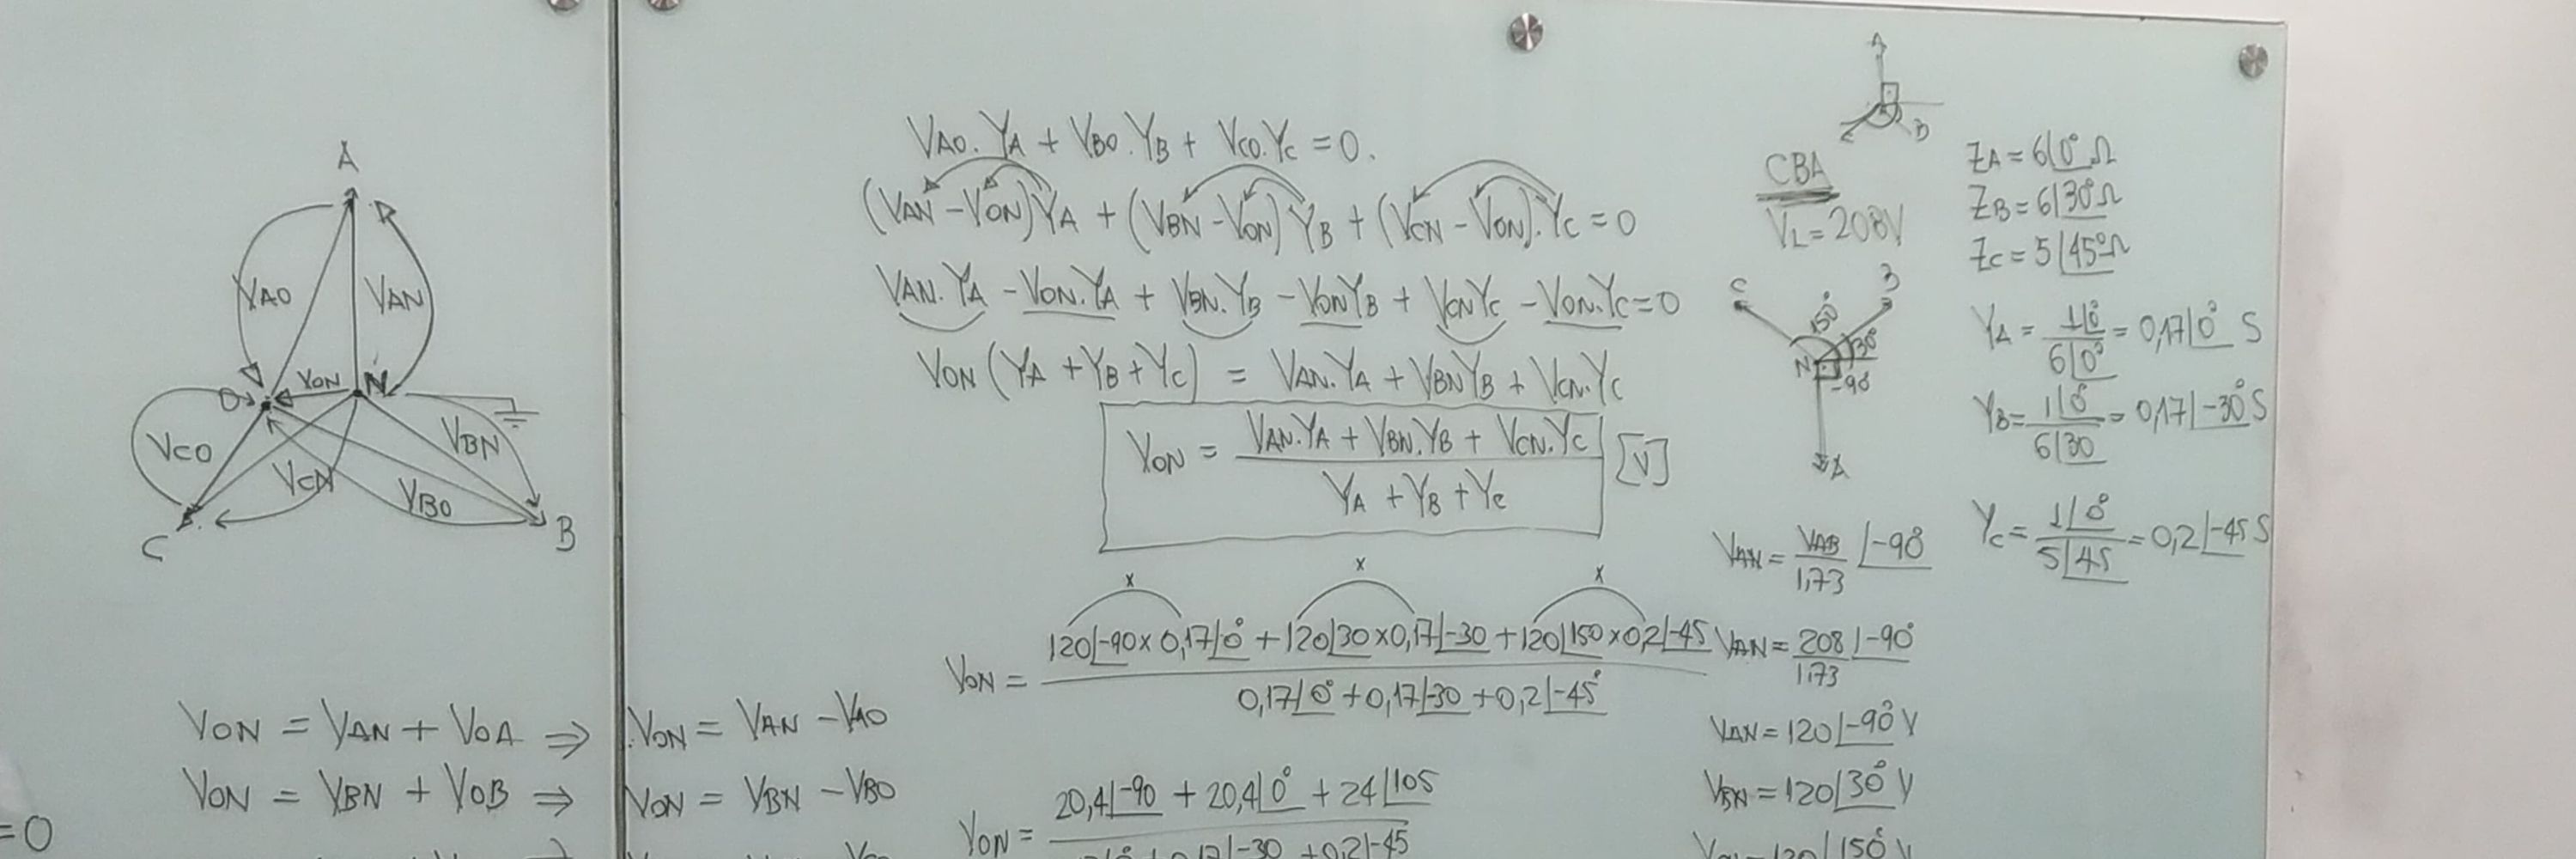 A
VAO
VAN
O
VON
N
VCO
VCN
VBO
VBN
C
B
VON = VAN + VOA ⇒ VON = VAN - VAO
VON = VBN + VOB ⇒ VON = VBN - VBO
=0
VAO.YA + VBO.YB + VCO.YC = 0.
(VAN - VON)YA + (VBN - VON)YB + (VCN - VON).YC = 0
VAN.YA - VON.YA + VBN.YB - VONYB + VCNYC - VON.YC = 0
VON (YA + YB + YC) = VAN.YA + VBNYB + VCN.YC
VON = VAN.YA + VBN.YB + VCN.YC [V]
YA + YB + YC
x x x
VON = 120∠-90 x 0,17∠0° + 120∠30 x 0,17∠-30 + 120∠150 x 0,2∠-45
0,17∠0° + 0,17∠-30 + 0,2∠-45°
VON = 20,4∠-90 + 20,4∠0° + 24∠105
0,17∠-30 + 0,2∠-45
A
B
CBA
VL = 208V
C
B
150°
30°
N
-90
A
VAN = VAB ∠-90°
1,73
VAN = 208∠-90°
1,73
VAN = 120∠-90° V
VBN = 120∠30° V
120∠150° V
ZA = 6∠0° Ω
ZB = 6∠30° Ω
ZC = 5∠45° Ω
YA = 1∠0° = 0,17∠0° S
6∠0°
YB = 1∠0° = 0,17∠-30° S
6∠30
YC = 1∠0° = 0,2∠-45 S
5∠45